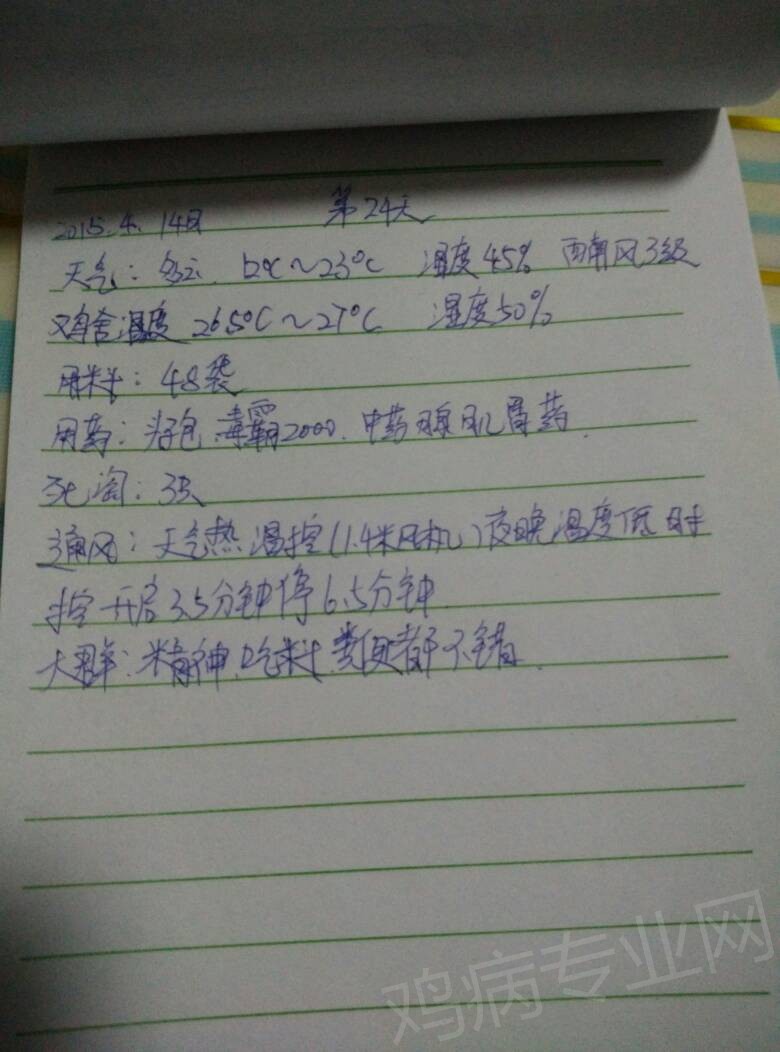 2015.4.14日 第24天
天气：多云 12℃～23℃ 湿度45% 西南风3级
鸡舍温度 26.5℃～27℃ 湿度50%
用料：48袋
用药：毒霸2000.中药腺肌胃药.
死淘：3只
通风：天气热温控(1.4米风机)夜晚温度低时
控开启3.5分钟停6.5分钟.
大群：精神.吃料.粪便都不错.
鸡病专业网